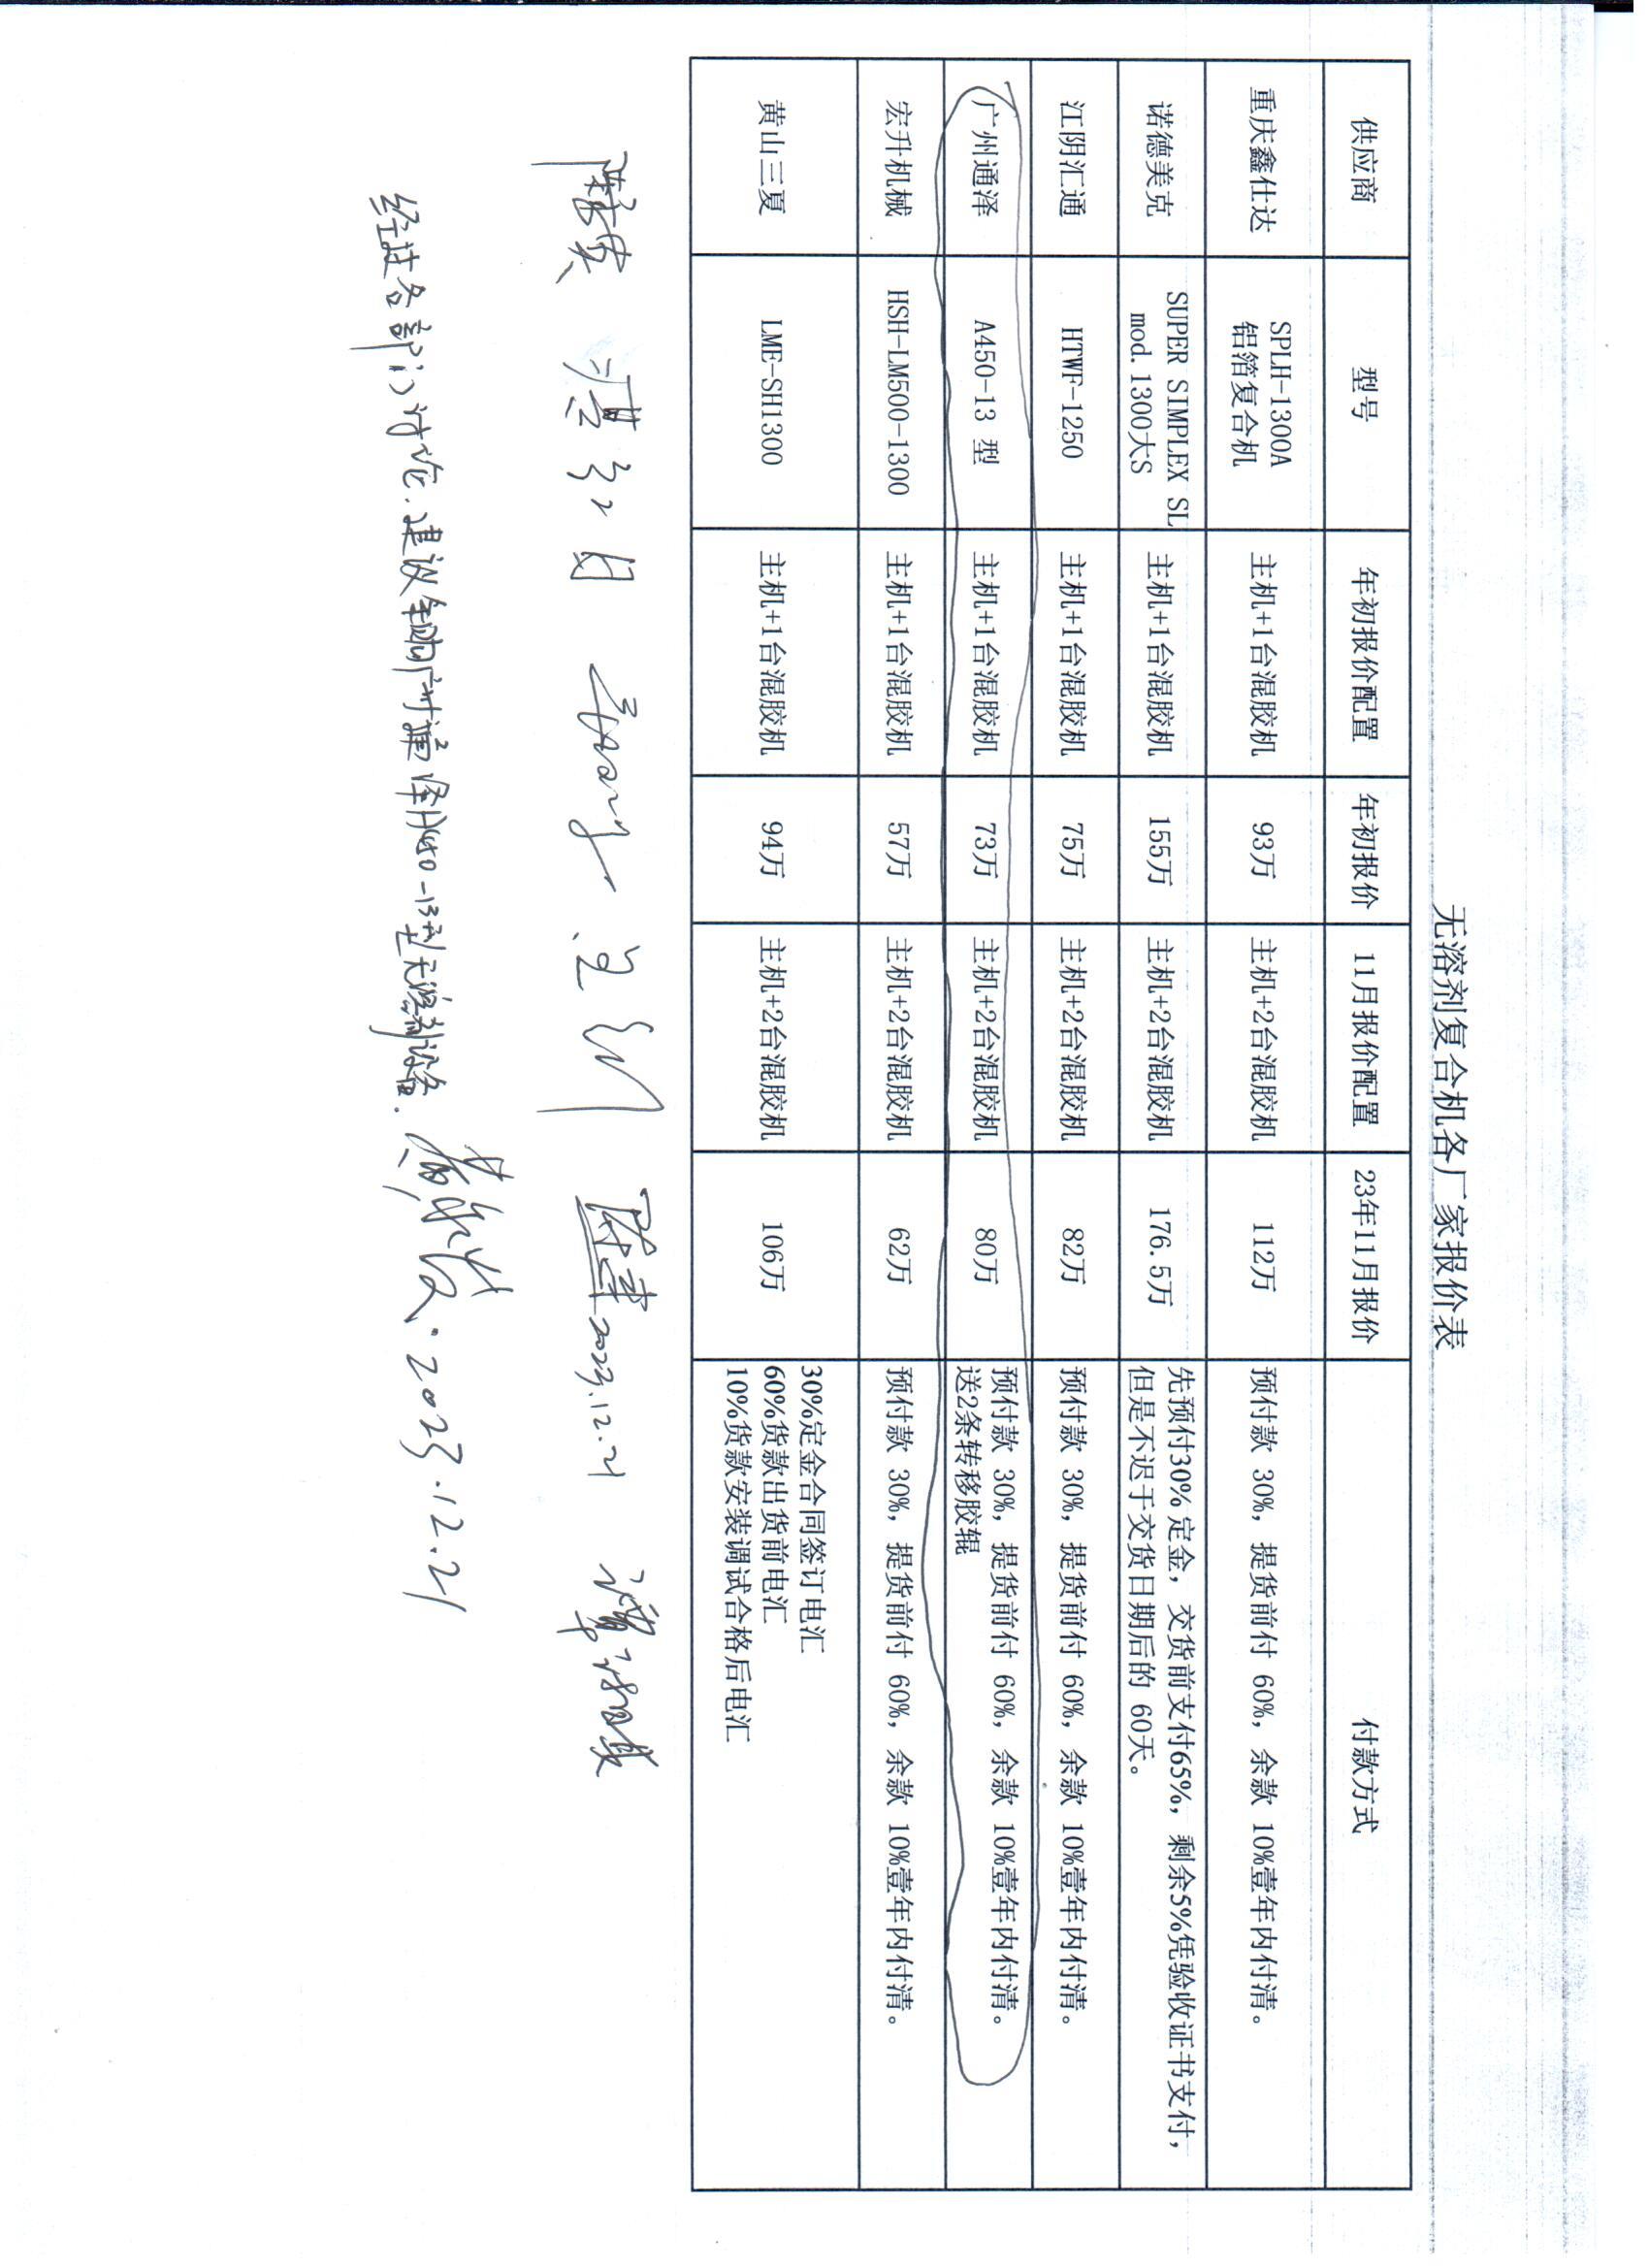 无溶剂复合机各厂家报价表
供应商 型号 年初报价配置 年初报价 11月报价配置 23年11月报价 付款方式
重庆鑫仕达 SPLH-1300A 铝箔复合机 主机+1台混胶机 93万 主机+2台混胶机 112万 预付款 30%, 提货前付 60%, 余款 10%壹年内付清。
诺德美克 SUPER SIMPLEX SL mod. 1300大S 主机+1台混胶机 155万 主机+2台混胶机 176.5万 先预付30% 定金, 交货前支付65%, 剩余5%凭验收证书支付, 但是不迟于交货日期后的 60天。
江阴汇通 HTWF-1250 主机+1台混胶机 75万 主机+2台混胶机 82万 预付款 30%, 提货前付 60%, 余款 10%壹年内付清。
广州通泽 A450-13 型 主机+1台混胶机 73万 主机+2台混胶机 80万 预付款 30%, 提货前付 60%, 余款 10%壹年内付清。 送2条转移胶辊
宏升机械 HSH-LM500-1300 主机+1台混胶机 57万 主机+2台混胶机 62万 预付款 30%, 提货前付 60%, 余款 10%壹年内付清。
黄山三夏 LME-SH1300 主机+1台混胶机 94万 主机+2台混胶机 106万 30%定金合同签订电汇 60%货款出货前电汇 10%货款安装调试合格后电汇
2023.12.21
经过各部门讨论.建议采购广州通泽A450-13型无溶剂设备. 2023.12.21